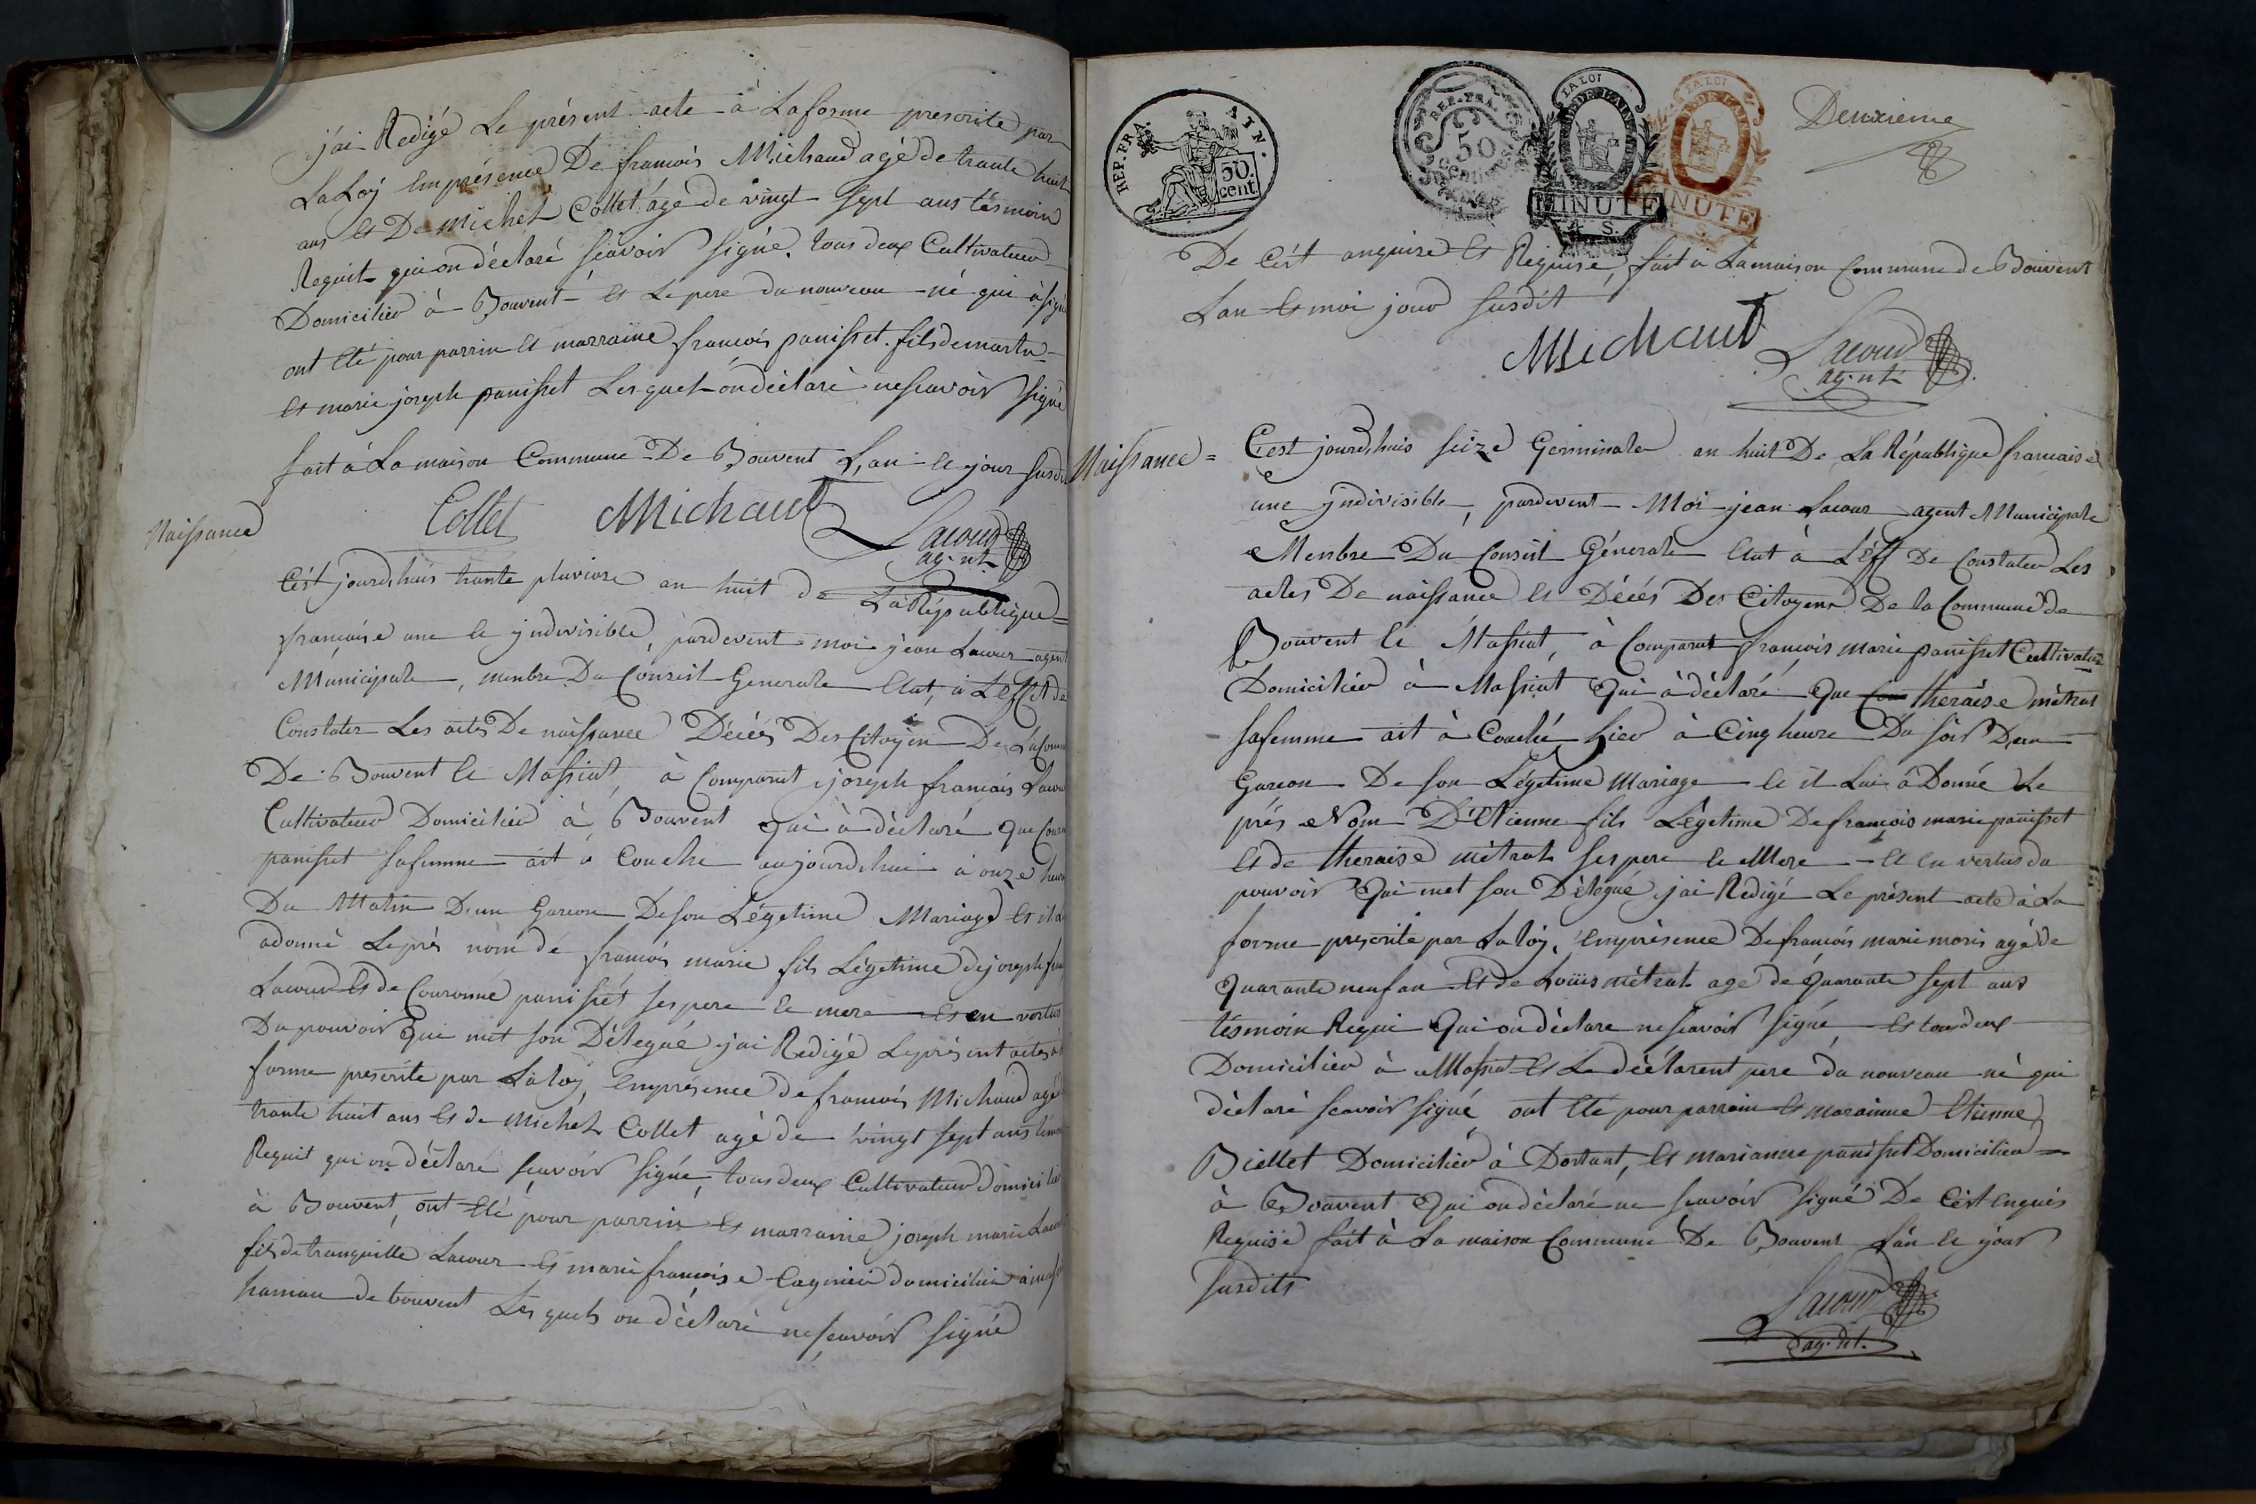 j'ai Redigé Le présent acte à Laforme prescrite par
LaLoÿ Emprésence De francois Michaud agé de trante huit
ans Et De Michel Collet âgé de vingt sept ans tésmoin
Requit qui on déclaré sçavoir signé. tous deux Cultivateur
Domicilier à Bouvent Et Le pere du nouveau né qui à signé
ont Eté pour parrin Et marraine francois panisset fils de martin
Et marie joseph panisset Lesquel on déclaré nescavoir signé
fait à La maison Commune De Bouvent L'an le jour susdit
Collet Michaud Lacour
ag.nt
Naissance
Cést jourd,huis trante pluviose an huit de La République
francaise une le yndivisible, pardevent moi jean Lacour agent
Municipale, menbre Du Conseil Generale Etat, à L'Effet de
Constater Les actes De naissance Décés Des Citoyen De La Commune
De Bouvent le Massiat, à Comparut joseph francois Lacour
Cultivateur Domicilier à Bouvent qui à déclaré que Couronné
panisset safemme ait à Couché aujourd,hui à onze heure
Du Matin D'un Garcon De son Légetime Mariage Et il a
adonné Le prés nom de francois marie fils Légetime de joseph francois
Lacour Et de Couronné panisset ses pere le mere Et en vertus
Du pouvoir qui met son Délegué j'ai Redigé Leprésent acte à la
forme prescrite par La loÿ, Emprésence de francois Michaud agé de
trante huit ans Et de Michel Collet agé de vingt sept ans témoin
Requit qui on déclaré sçavoir signé, tous deux Cultivateur domicilié
à Bouvent, ont Eté pour parrin Et marraine joseph marie Lacour
fils de tranquille Lacour Et marie francoise domicilier
hamau de bouvent Lesquels on déclaré nescavoir signé
REP. FRA. ATN.
50. cent.
REP. FRA.
50
centimes
LA LOI
MINUTE
A. S.
LA LOI
MINUTE
S.
Deuxieme
De Cést anquire Et Requise, fait a La maison Commune de Bouvent
Lan Et moi jour susdit
Michaud Lacour
ag.nt
Naissance =
C'est jourd,huis seize Germinale an huit De La République francaise
une yndivisible, pardevent Moi jean Lacour agent Municipale
Menbre Du Conseil Génerale Etat à L'éff De Constater Les
actes De naissance Et Décés Des Citoyen De la Commune de
Bouvent le Massiat, à Comparut francois marie panisset Cultivateur
Domicilier à Massiat Qui à déclaré Que theraise métrat
safemme ait à Couché hier à Cinq heure Du soir D'un
Garcon De son Légetime Mariage le il Lui à Donné Le
prés Nom D'Etienne fils Légetime De francois marie panisset
Et de theraise métrat ses pere le Mere Et en vertus du
pouvoir Qui met son Délegué j'ai Redigé Le présent acte à La
forme prescrite par La loÿ. Emprésence De francois marie moris agé de
Quarante neuf an Et de Loüis métrat age de Quarante sept ans
tésmoin Requi Qui on déclare nescavoir signé, Et tous deux
Domicilier à Massiat Et Le déclarent pere du nouveau né qui
déclaré scavoir signé, ont Eté pour parrain Et maraine Etienne
Biellet Domicilier à Dortant, Et marianne panisset Domicilier
à Bouvent Qui on déclaré ne scavoir signé De Cést enquis
Requise fait à La maison Commune De Bouvent L'an le jour
susdits
Lacour
ag.nt.